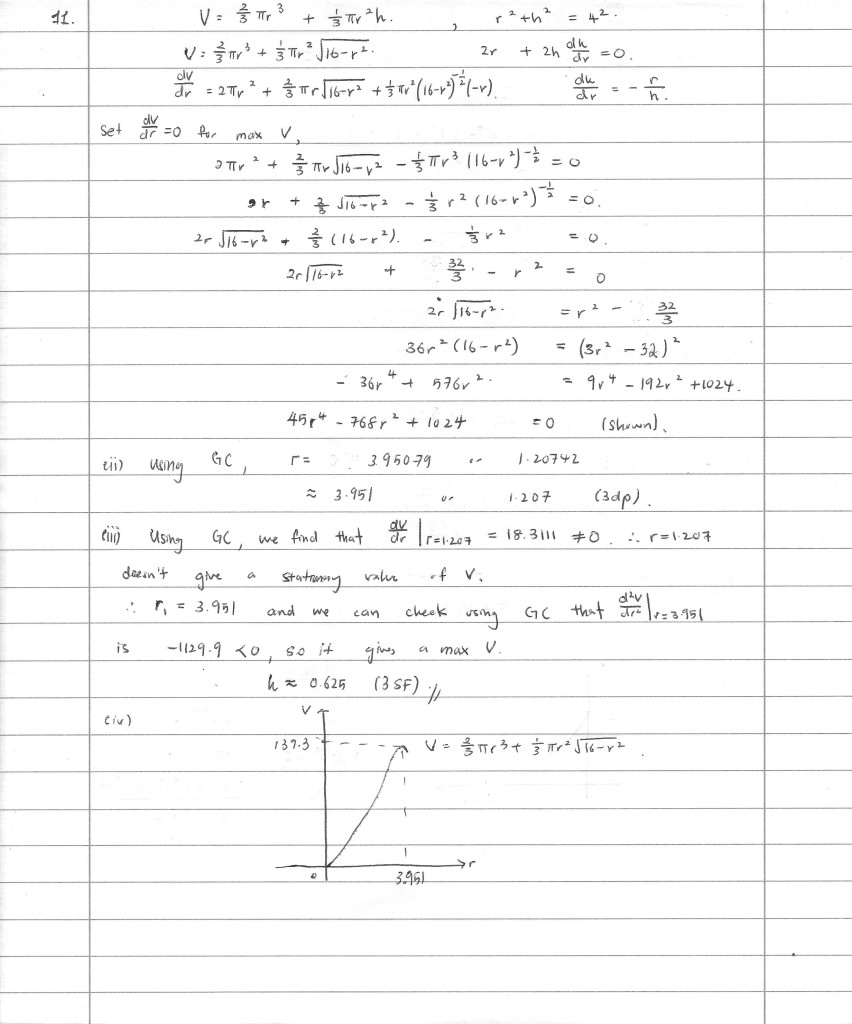 11. V = 2/3 πr³ + 1/3 πr²h. , r² + h² = 4².
V = 2/3 πr³ + 1/3 πr² √(16-r²). 2r + 2h dh/dr = 0.
dV/dr = 2πr² + 2/3 πr√(16-r²) + 1/3 πr²(16-r²)^(-1/2)(-r). dh/dr = - r/h.
Set dV/dr = 0 for max V,
2πr² + 2/3 πr√(16-r²) - 1/3 πr³ (16-r²)^(-1/2) = 0
2r + 2/3 √(16-r²) - 1/3 r² (16-r²)^(-1/2) = 0.
2r √(16-r²) + 2/3 (16-r²). - 1/3 r² = 0.
2r√(16-r²) + 32/3 . - r² = 0
2r √(16-r²) . = r² - 32/3
36r² (16-r²) = (3r² - 32)²
- 36r⁴ + 576r² . = 9r⁴ - 192r² + 1024.
45r⁴ - 768r² + 1024 = 0 (shown).
(ii) Using GC, r = 3.95079 or 1.20742
≈ 3.951 or 1.207 (3dp).
(iii) Using GC, we find that dV/dr |r=1.207 = 18.3111 ≠ 0. ∴ r=1.207
doesn't give a stationary value of V.
∴ r₁ = 3.951 and we can check using GC that d²V/dr² |r=3.951
is -1129.9 <0, so it gives a max V.
h ≈ 0.625 (3SF).//
(iv) V
137.3 V = 2/3 πr³ + 1/3 πr² √(16-r²) .
r
0 3.951